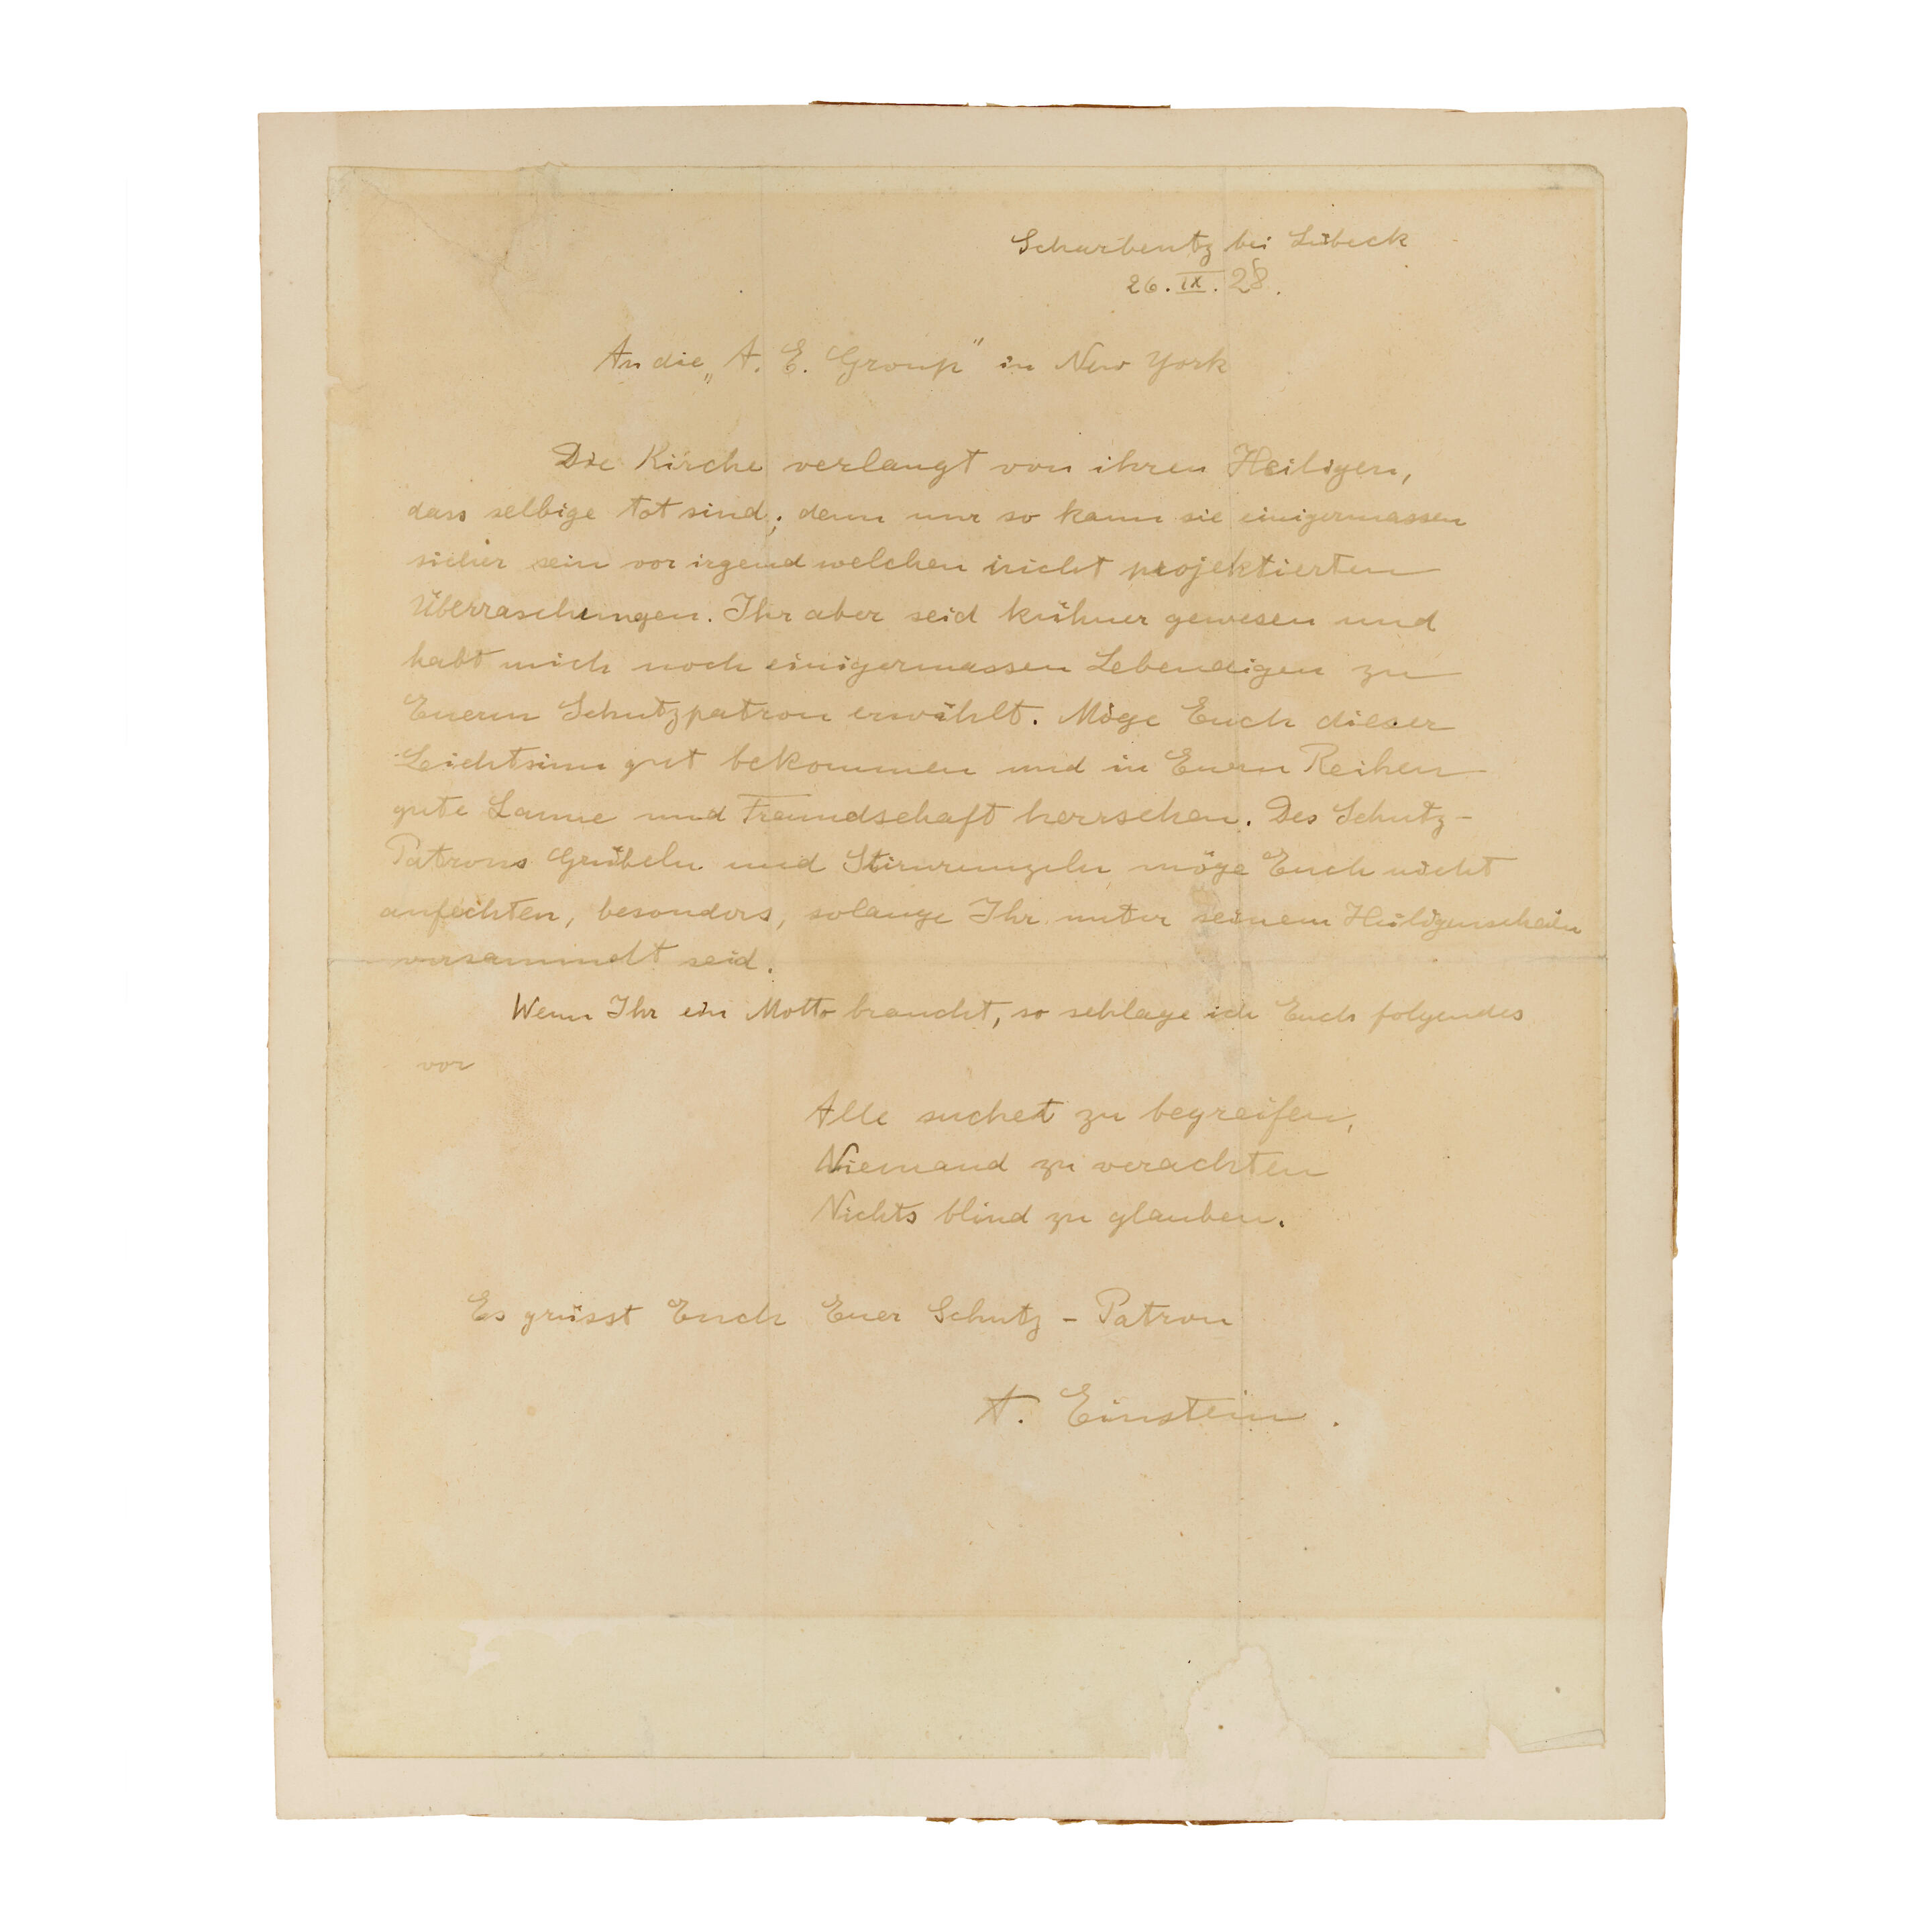 Scharbeutz bei Lübeck
26. IX. 28.
An die „A. E. Group" in New York
Die Kirche verlangt von ihren Heiligen,
dass selbige tot sind; denn nur so kann sie einigermassen
sicher sein vor irgend welchen nicht projektierten
Überraschungen. Ihr aber seid kühner gewesen und
habt mich noch einigermassen Lebendigen zu
Euerm Schutzpatron erwählt. Möge Euch dieser
Leichtsinn gut bekommen und in Euern Reihen
gute Laune und Freundschaft herrschen. Des Schutz-
Patrons Grübeln und Stirnrunzeln möge Euch nicht
anfechten, besonders, solange Ihr unter seinem Heiligenschein
versammelt seid.
Wenn Ihr ein Motto braucht, so schlage ich Euch folgendes
vor
Alle suchet zu begreifen,
Niemand zu verachten
Nichts blind zu glauben.
Es grüsst Euch Euer Schutz-Patron
A. Einstein.